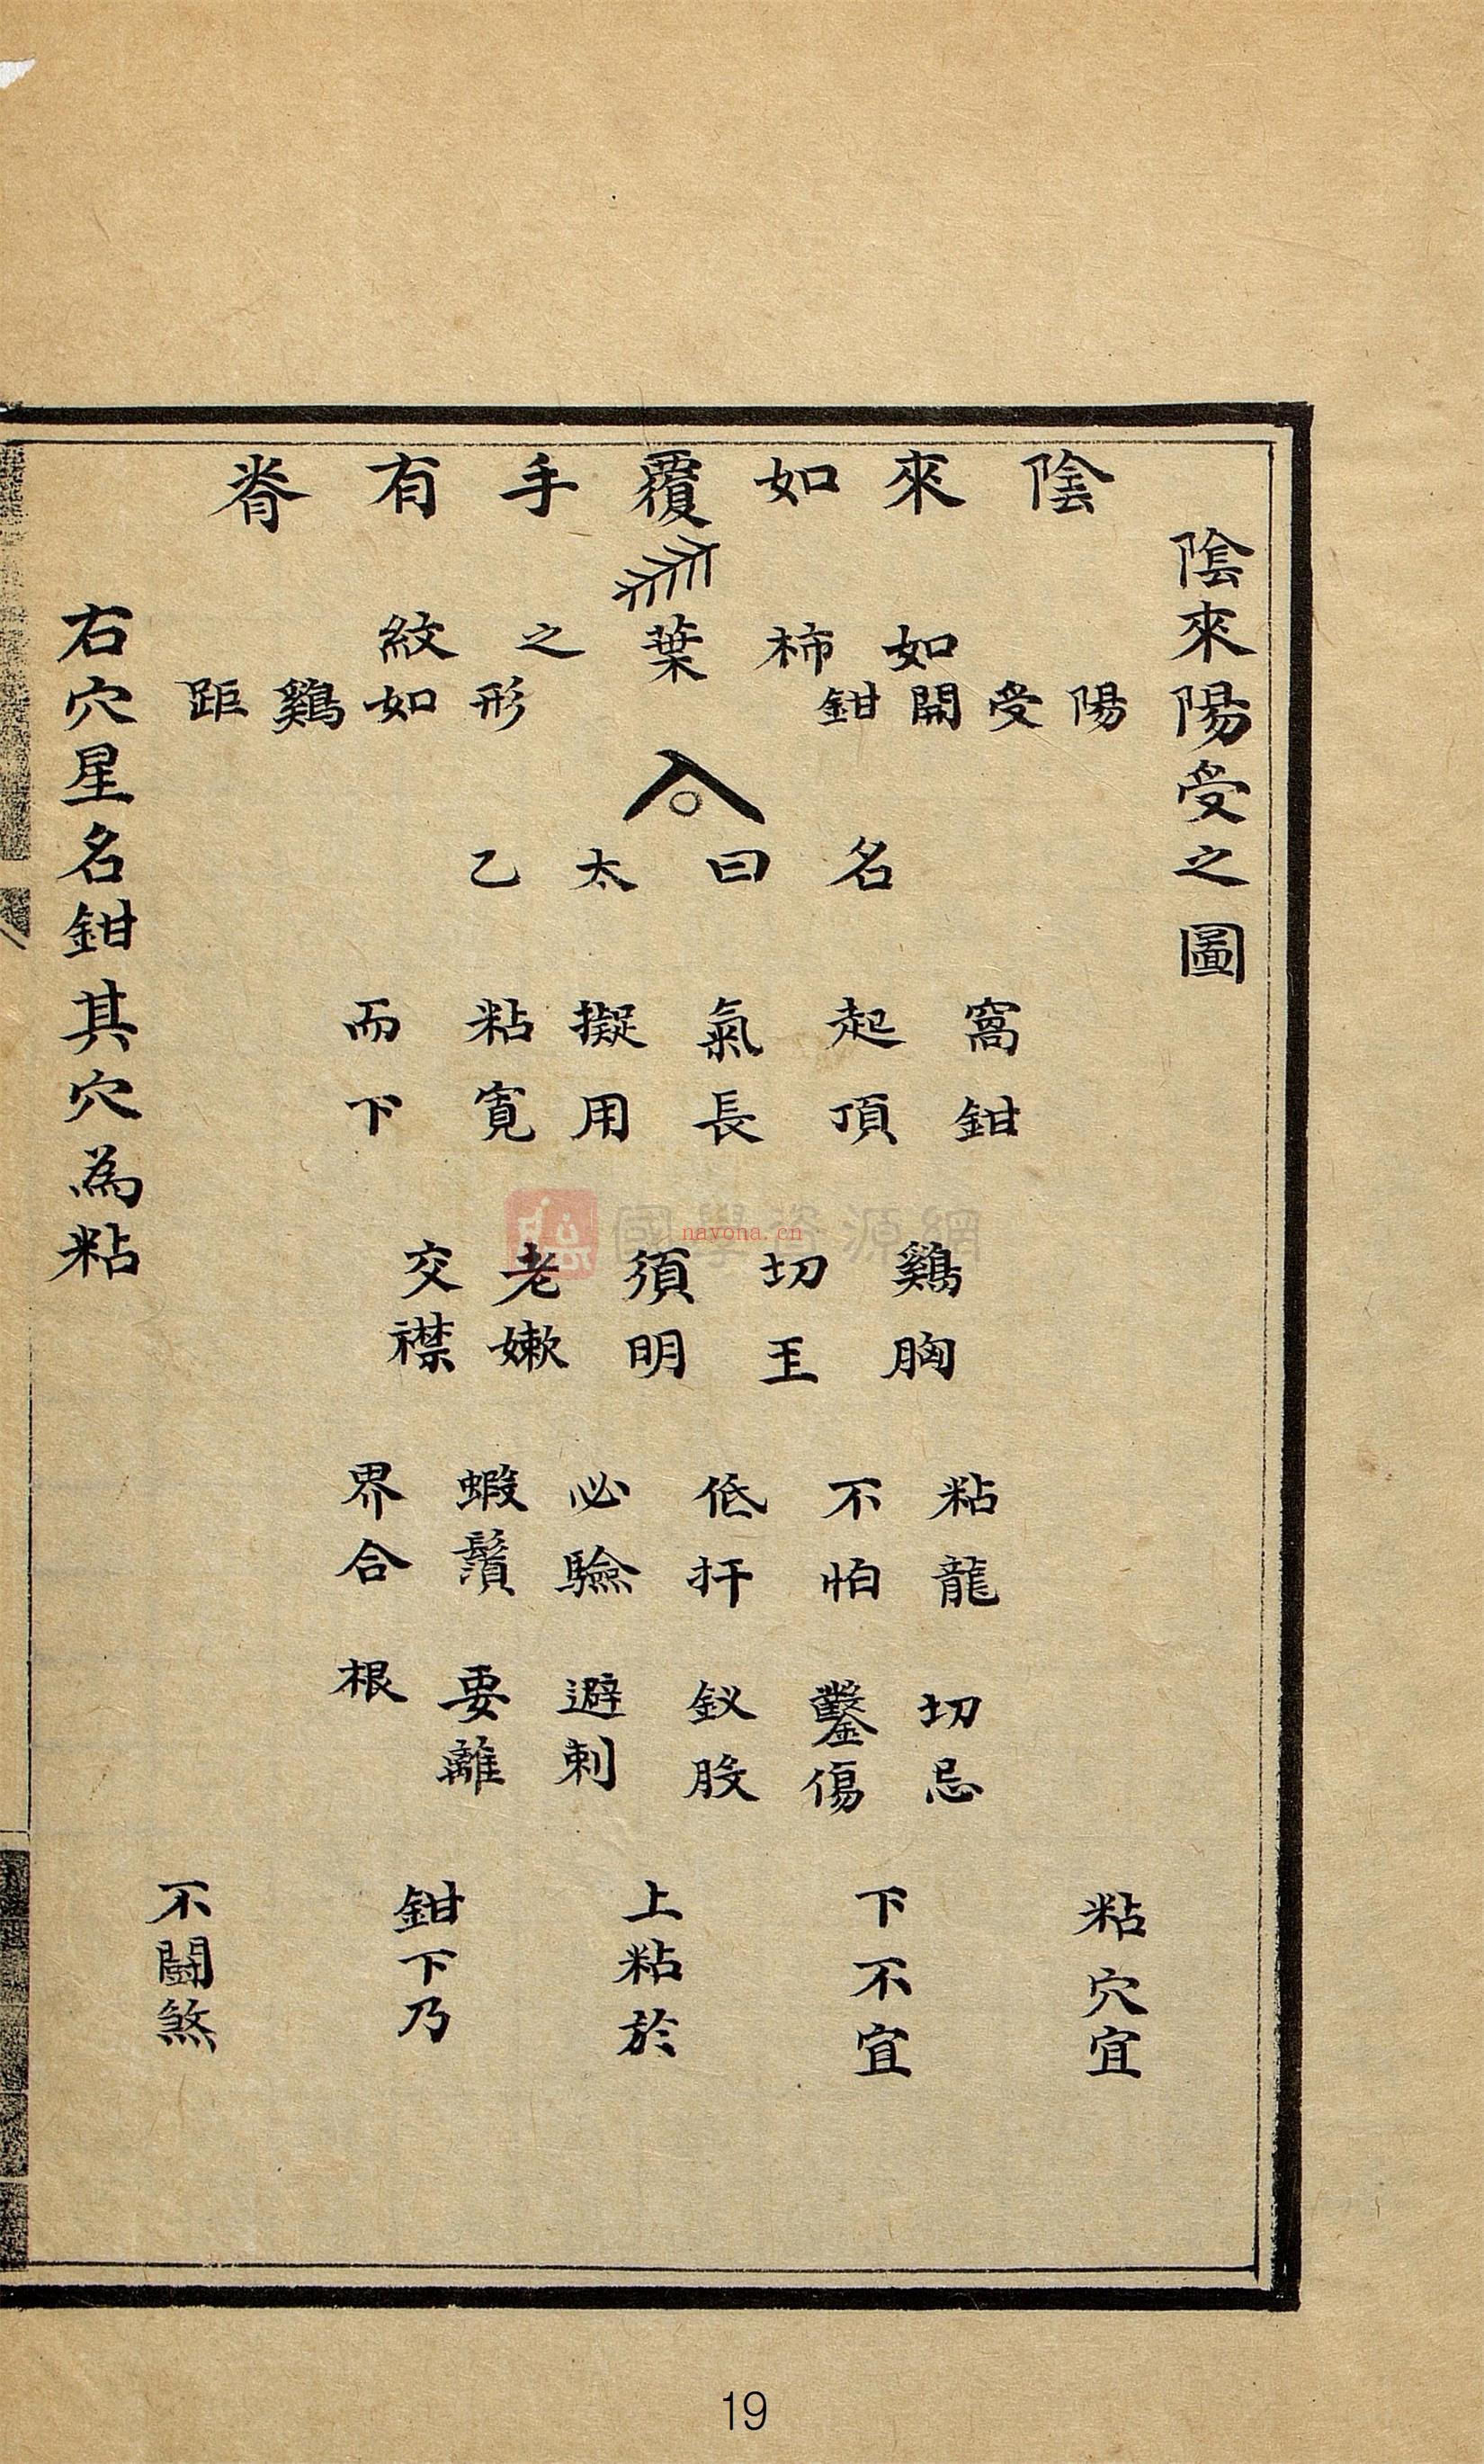 陰來陽受之圖
陰來如覆手有脊
如柿葉之紋
陽受開鉗
形如鷄距
名曰太乙
窩鉗
起頂
氣長
擬用
粘寬
而下
鷄胸
切玊
須明
老嫰
交襟
粘龍
不怕
低扦
必驗
蝦鬚
界合
切忌
鑿傷
釵股
避刺
要離
根
粘穴宜
下不宜
上粘於
鉗下乃
不鬪煞
右穴星名鉗其穴為粘
國學資源網
navona.cn
19